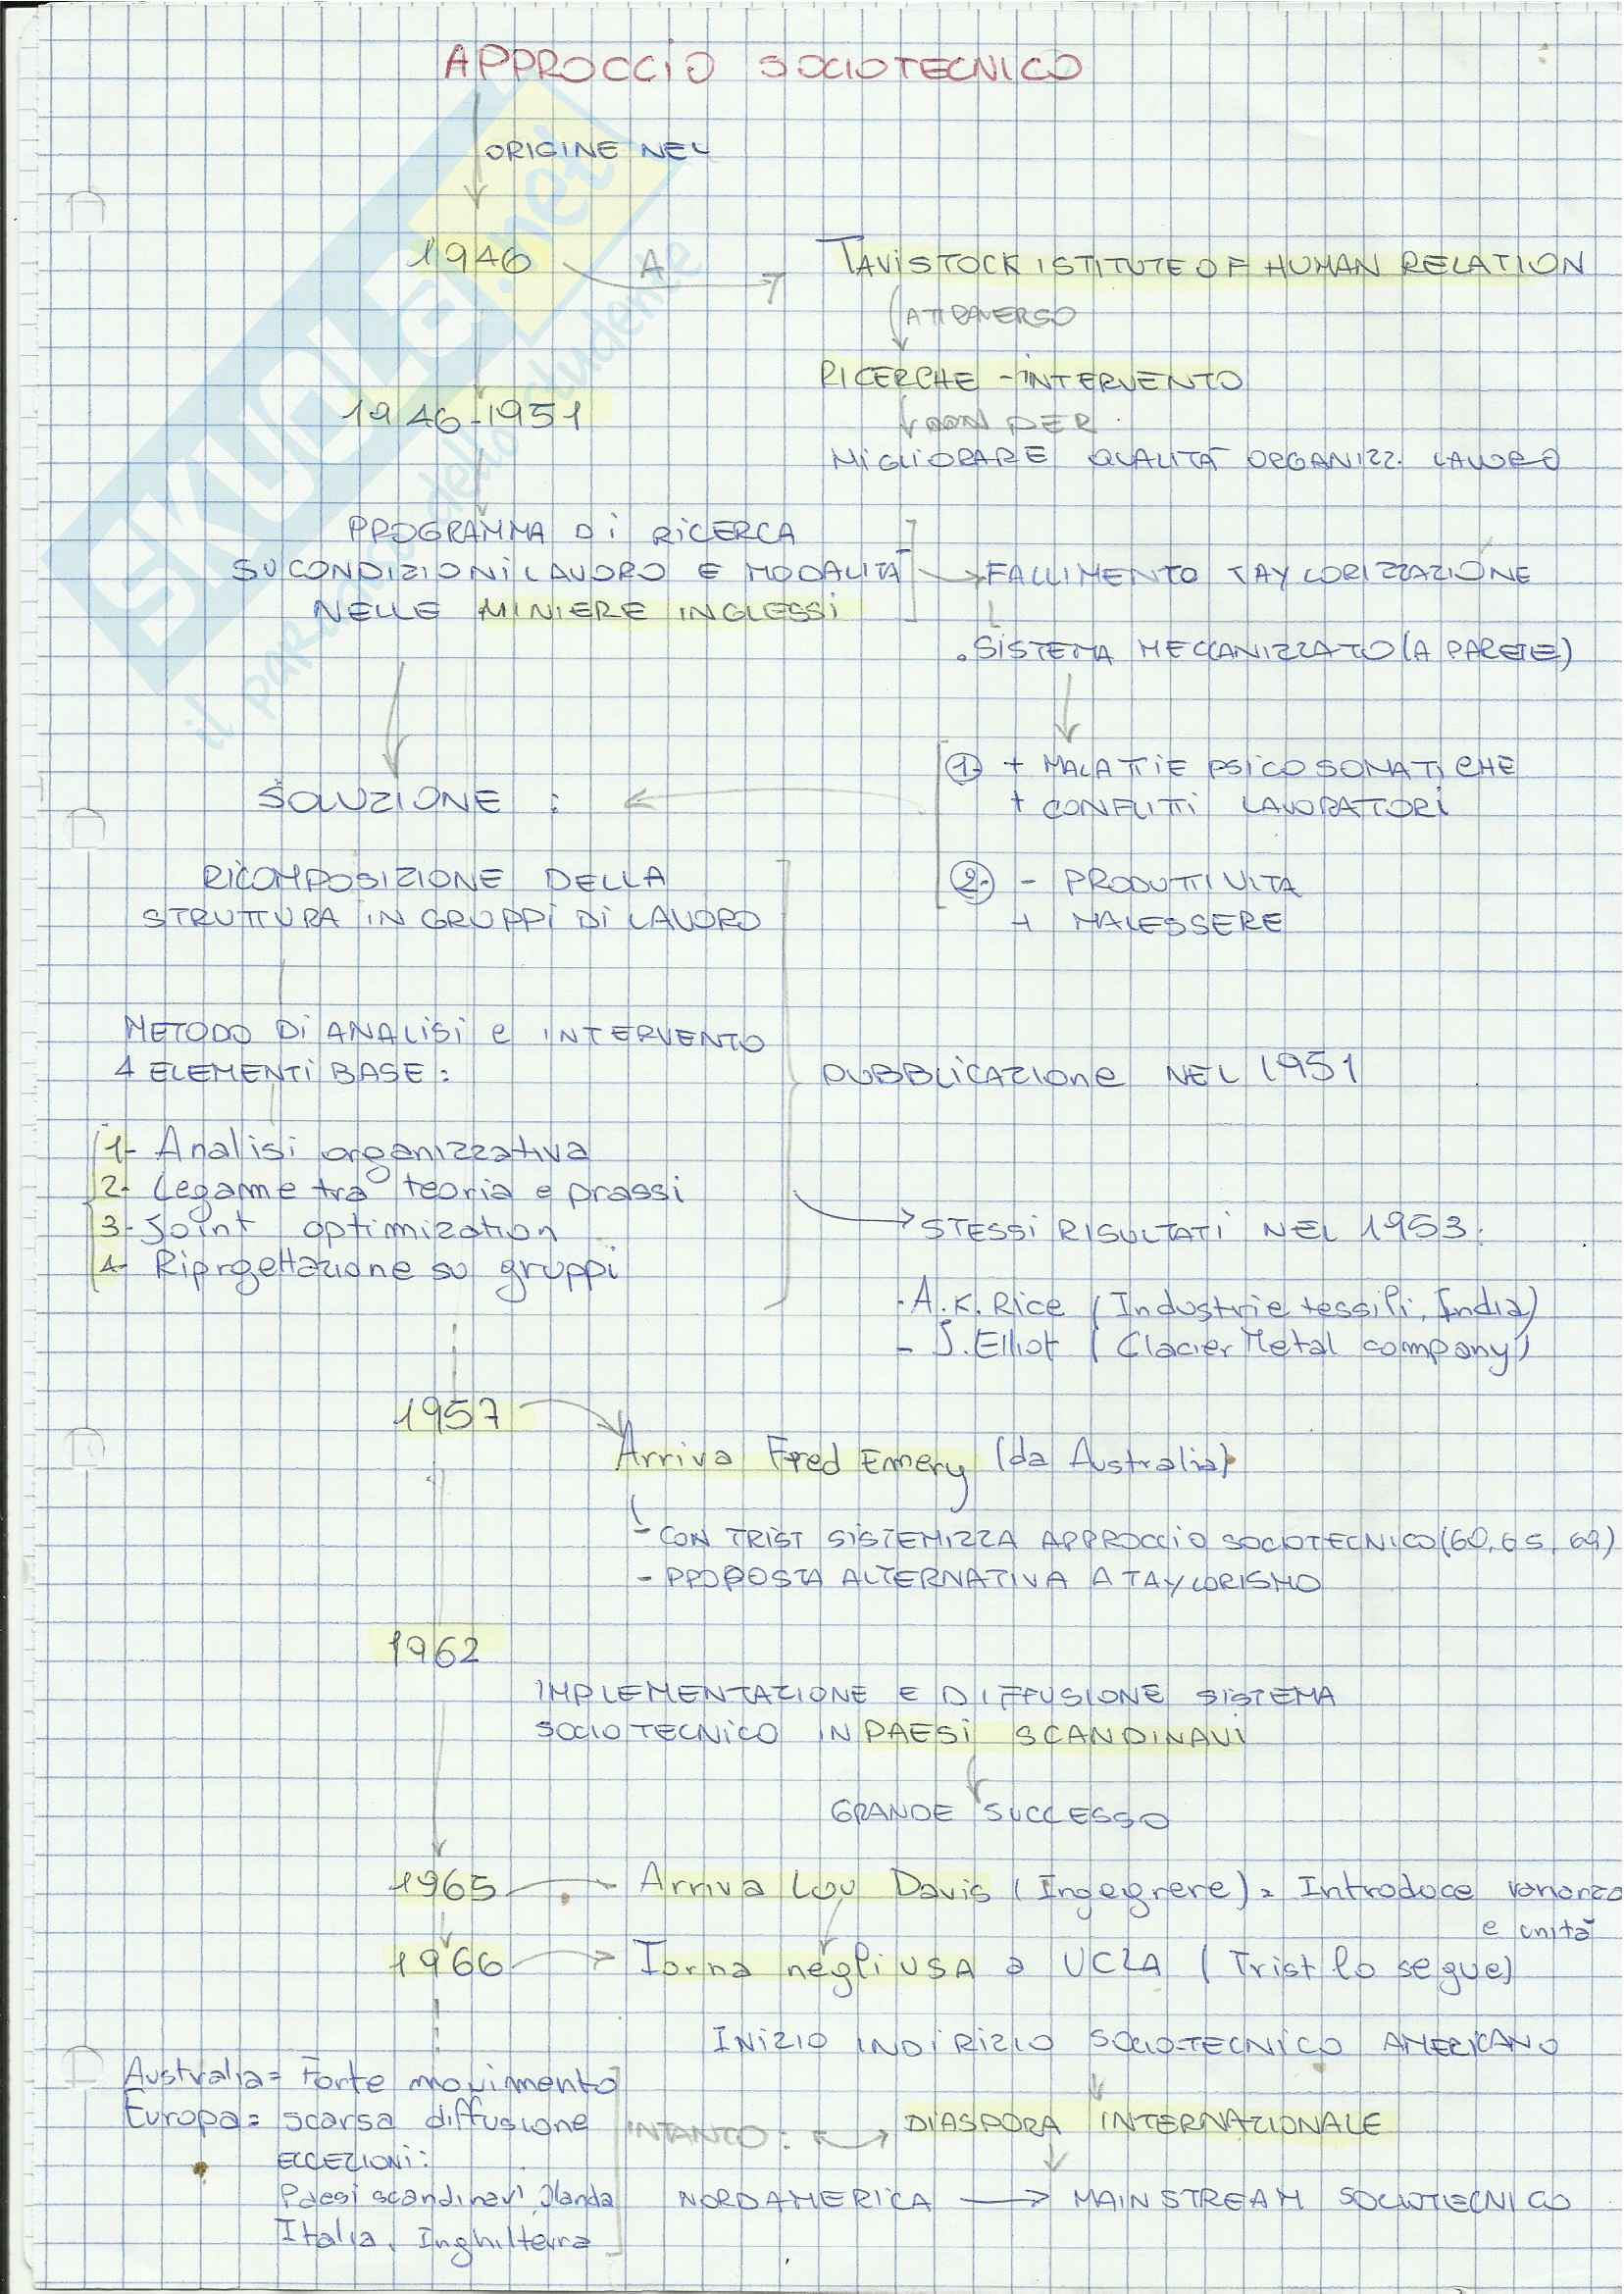 APPROCCIO SOCIOTECNICO
ORIGINE NEL
1946 A TAVISTOCK ISTITUTE OF HUMAN RELATION
ATTRAVERSO
RICERCHE-INTERVENTO
1946-1951
PER
MIGLIORARE QUALITÀ ORGANIZZ. LAVORO
PROGRAMMA DI RICERCA
SU CONDIZIONI LAVORO E MODALITÀ
NELLE MINIERE INGLESSI
FALLIMENTO TAYLORIZZAZIONE
. SISTEMA MECCANIZZATO (A PARETE)
1. + MALATTIE PSICOSOMATICHE
+ CONFLITTI LAVORATORI
SOLUZIONE :
RICOMPOSIZIONE DELLA
STRUTTURA IN GRUPPI DI LAVORO
2. - PRODUTTIVITA
+ MALESSERE
METODO DI ANALISI e INTERVENTO
4 ELEMENTI BASE:
PUBBLICAZIONE NEL 1951
1- Analisi organizzativa
2- Legame tra teoria e prassi
3- Joint optimization
4- Riprgettazione su gruppi
STESSI RISULTATI NEL 1953:
- A.K. Rice (Industrie tessili, India)
- J. Elliot (Glacier Metal company)
1957
Arriva Fred Emery (da Australia)
- CON TRIST SISTEMIZZA APPROCCIO SOCIOTECNICO (60, 65, 69)
- PROPOSTA ALTERNATIVA A TAYLORISMO
1962
IMPLEMENTAZIONE E DIFFUSIONE SISTEMA
SOCIOTECNICO IN PAESI SCANDINAVI
GRANDE SUCCESSO
1965 Arriva Lou Davis (Ingegnere) = Introduce varianza
e unità
1966 Torna negli USA a UCLA (Trist lo segue)
INIZIO INDIRIZIO SOCIO-TECNICO AMERICANO
Australia = Forte movimento
Europa = scarsa diffusione
ECCEZIONI:
Paesi scandinavi, Olanda
Italia, Inghilterra
INTANTO: DIASPORA INTERNAZIONALE
NORDAMERICA MAINSTREAM SOCIOTECNICO
SKUOLA.net
il paradiso dello studente